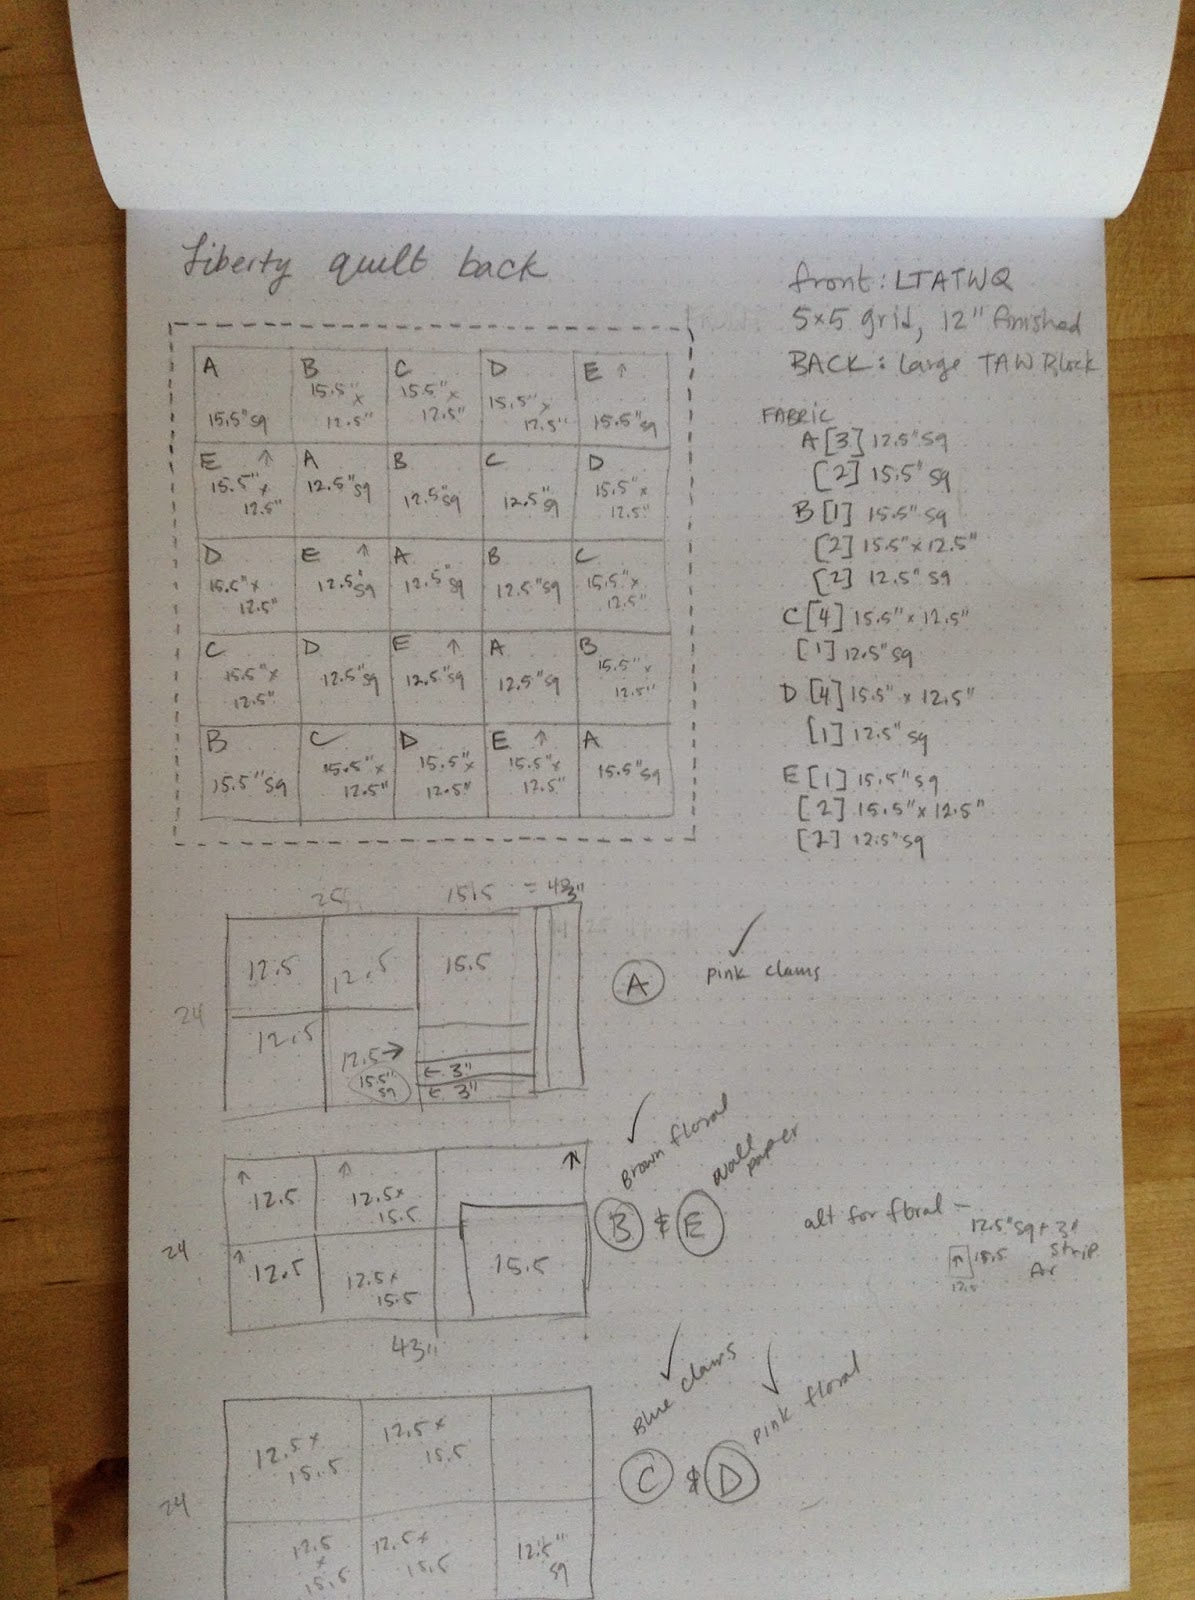 Liberty quilt back
front: LTATWQ
5x5 grid, 12" finished
BACK: Large TAW Block
A B C D E ↑
15.5"sq 15.5" x 12.5" 15.5" x 12.5" 15.5" x 12.5" 15.5"sq
E ↑ A B C D
15.5" x 12.5" 12.5"sq 12.5"sq 12.5"sq 15.5" x 12.5"
D E ↑ A B C
15.5" x 12.5" 12.5"sq 12.5"sq 12.5"sq 15.5" x 12.5"
C D E ↑ A B
15.5" x 12.5" 12.5"sq 12.5"sq 12.5"sq 15.5" x 12.5"
B C D E ↑ A
15.5"sq 15.5" x 12.5" 15.5" x 12.5" 15.5" x 12.5" 15.5"sq
FABRIC
A [3] 12.5"sq
[2] 15.5"sq
B [1] 15.5"sq
[2] 15.5" x 12.5"
[2] 12.5"sq
C [4] 15.5" x 12.5"
[1] 12.5"sq
D [4] 15.5" x 12.5"
[1] 12.5"sq
E [1] 15.5"sq
[2] 15.5" x 12.5"
[2] 12.5"sq
15.5
12.5 12.5 15.5
24
12.5 12.5→
15.5"
sq
← 3"
← 3"
A pink clams
↑ ↑ ↑
12.5 12.5x
15.5
24
↑
12.5 12.5x
15.5
15.5
43"
Brown floral
wall
paper
B & E
alt for floral –
12.5"sq + 3"
strip
for
↑ 15.5
12.5
12.5x
15.5
12.5x
15.5
24
12.5
x
15.5
12.5x
15.5
12.5"
sq
Blue clams
pink floral
C & D